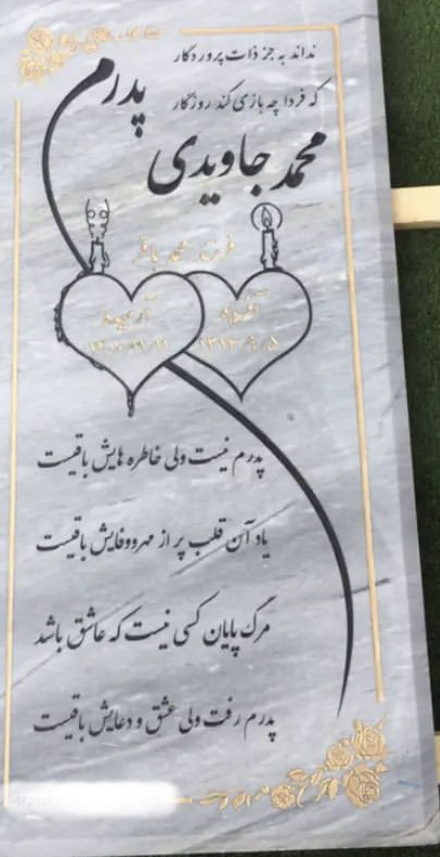 نداند به جز ذات پروردگار
که فردا چه بازی کند روزگار
پدرم
محمد جاویدی
فرزند محمد باقر
۱۳۱۳/۹/۵
پدرم نیست ولی خاطره هایش باقیست
یاد آن قلب پر از مهر و وفایش باقیست
مرگ پایان کسی نیست که عاشق باشد
پدرم رفت ولی عشق و دعایش باقیست